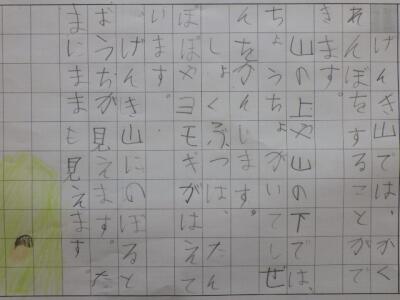 げんき山では、かく
れんぼをすることがで
きます。
山の上や山の下では、
ちょうちょがいてしぜ
んをかんじます。
しょくぶつは、たん
ぽぽやヨモギがはえて
います。
げんき山にのぼると
おうちが見えます。た
まにままも見えます。